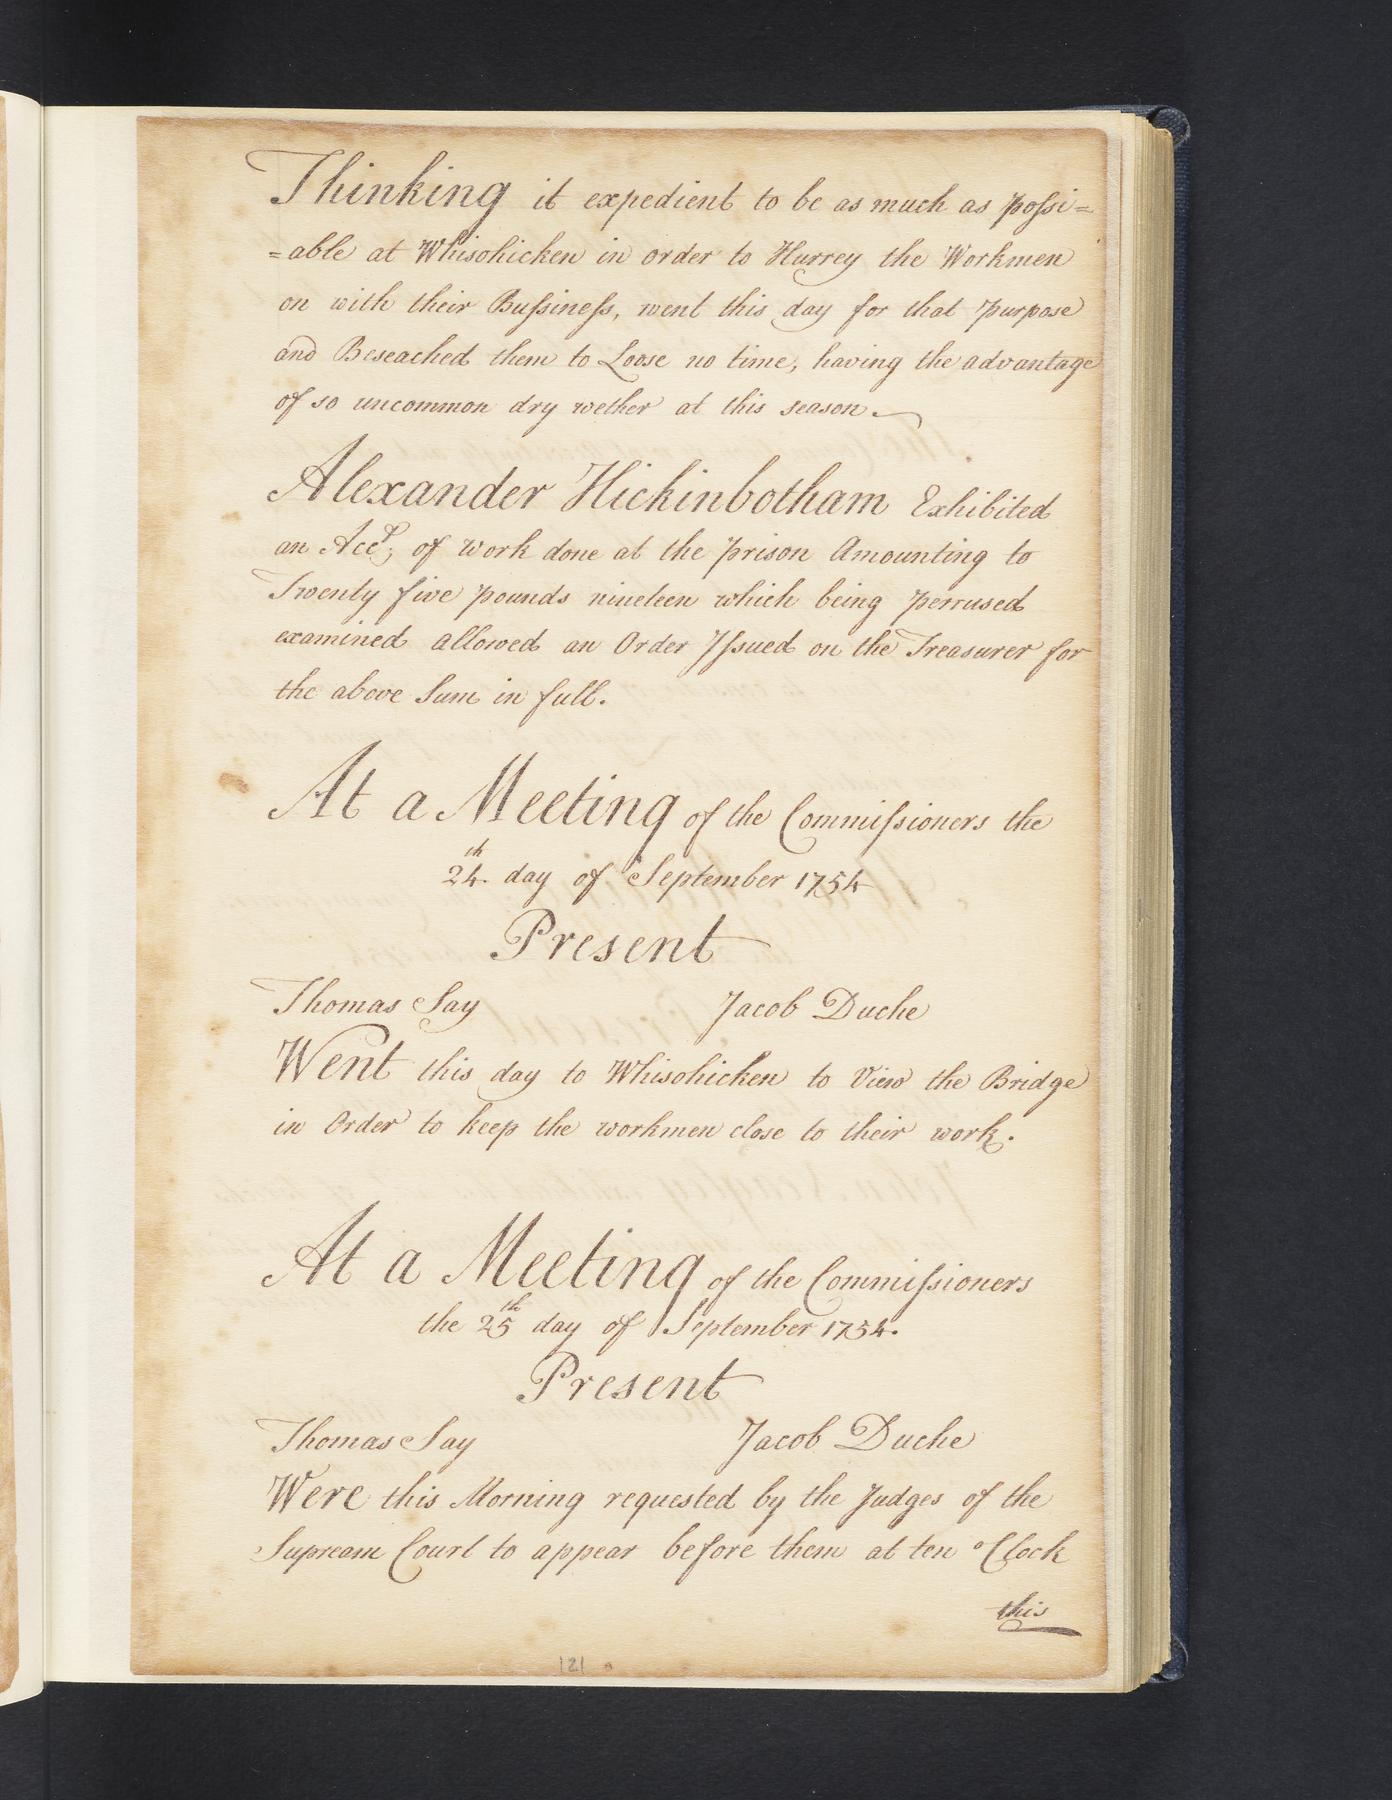 Thinking it expedient to be as much as possi=
=able at Whisohicken in order to Hurrey the Workmen
on with their Bussiness, went this day for that purpose
and Beseached them to Loose no time, having the advantage
of so uncommon dry wether at this season.
Alexander Hickinbotham Exhibited
an Acct; of work done at the prison Amounting to
Twenty five pounds nineteen which being perrused
examined allowed an Order Issued on the Treasurer for
the above Sum in full.
At a Meeting of the Commissioners the
24th. day of September 1754
Present
Thomas Say Jacob Duche
Went this day to Whisohicken to View the Bridge
in Order to keep the workmen close to their work.
At a Meeting of the Commissioners
the 25th day of September 1754.
Present
Thomas Say Jacob Duche
Were this Morning requested by the Judges of the
Supream Court to appear before them at ten oClock
this
121